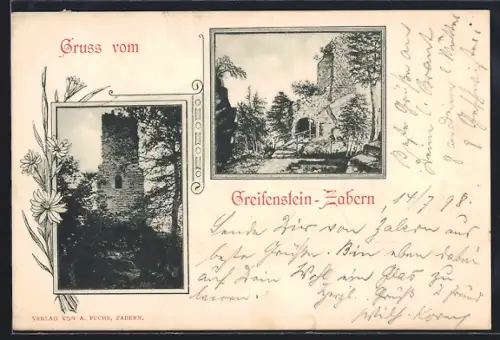 Gruss vom
Greifenstein-Zabern
14/7 98.
Sende Dir von Zabern aus
beste Grüsse. Bin eben dabei
auf Dein Wohl ein Glas zu
leeren. Herzl. Gruß u Freund
Wilh.
Beste Grüße an
VERLAG VON A. FUCHS, ZABERN.